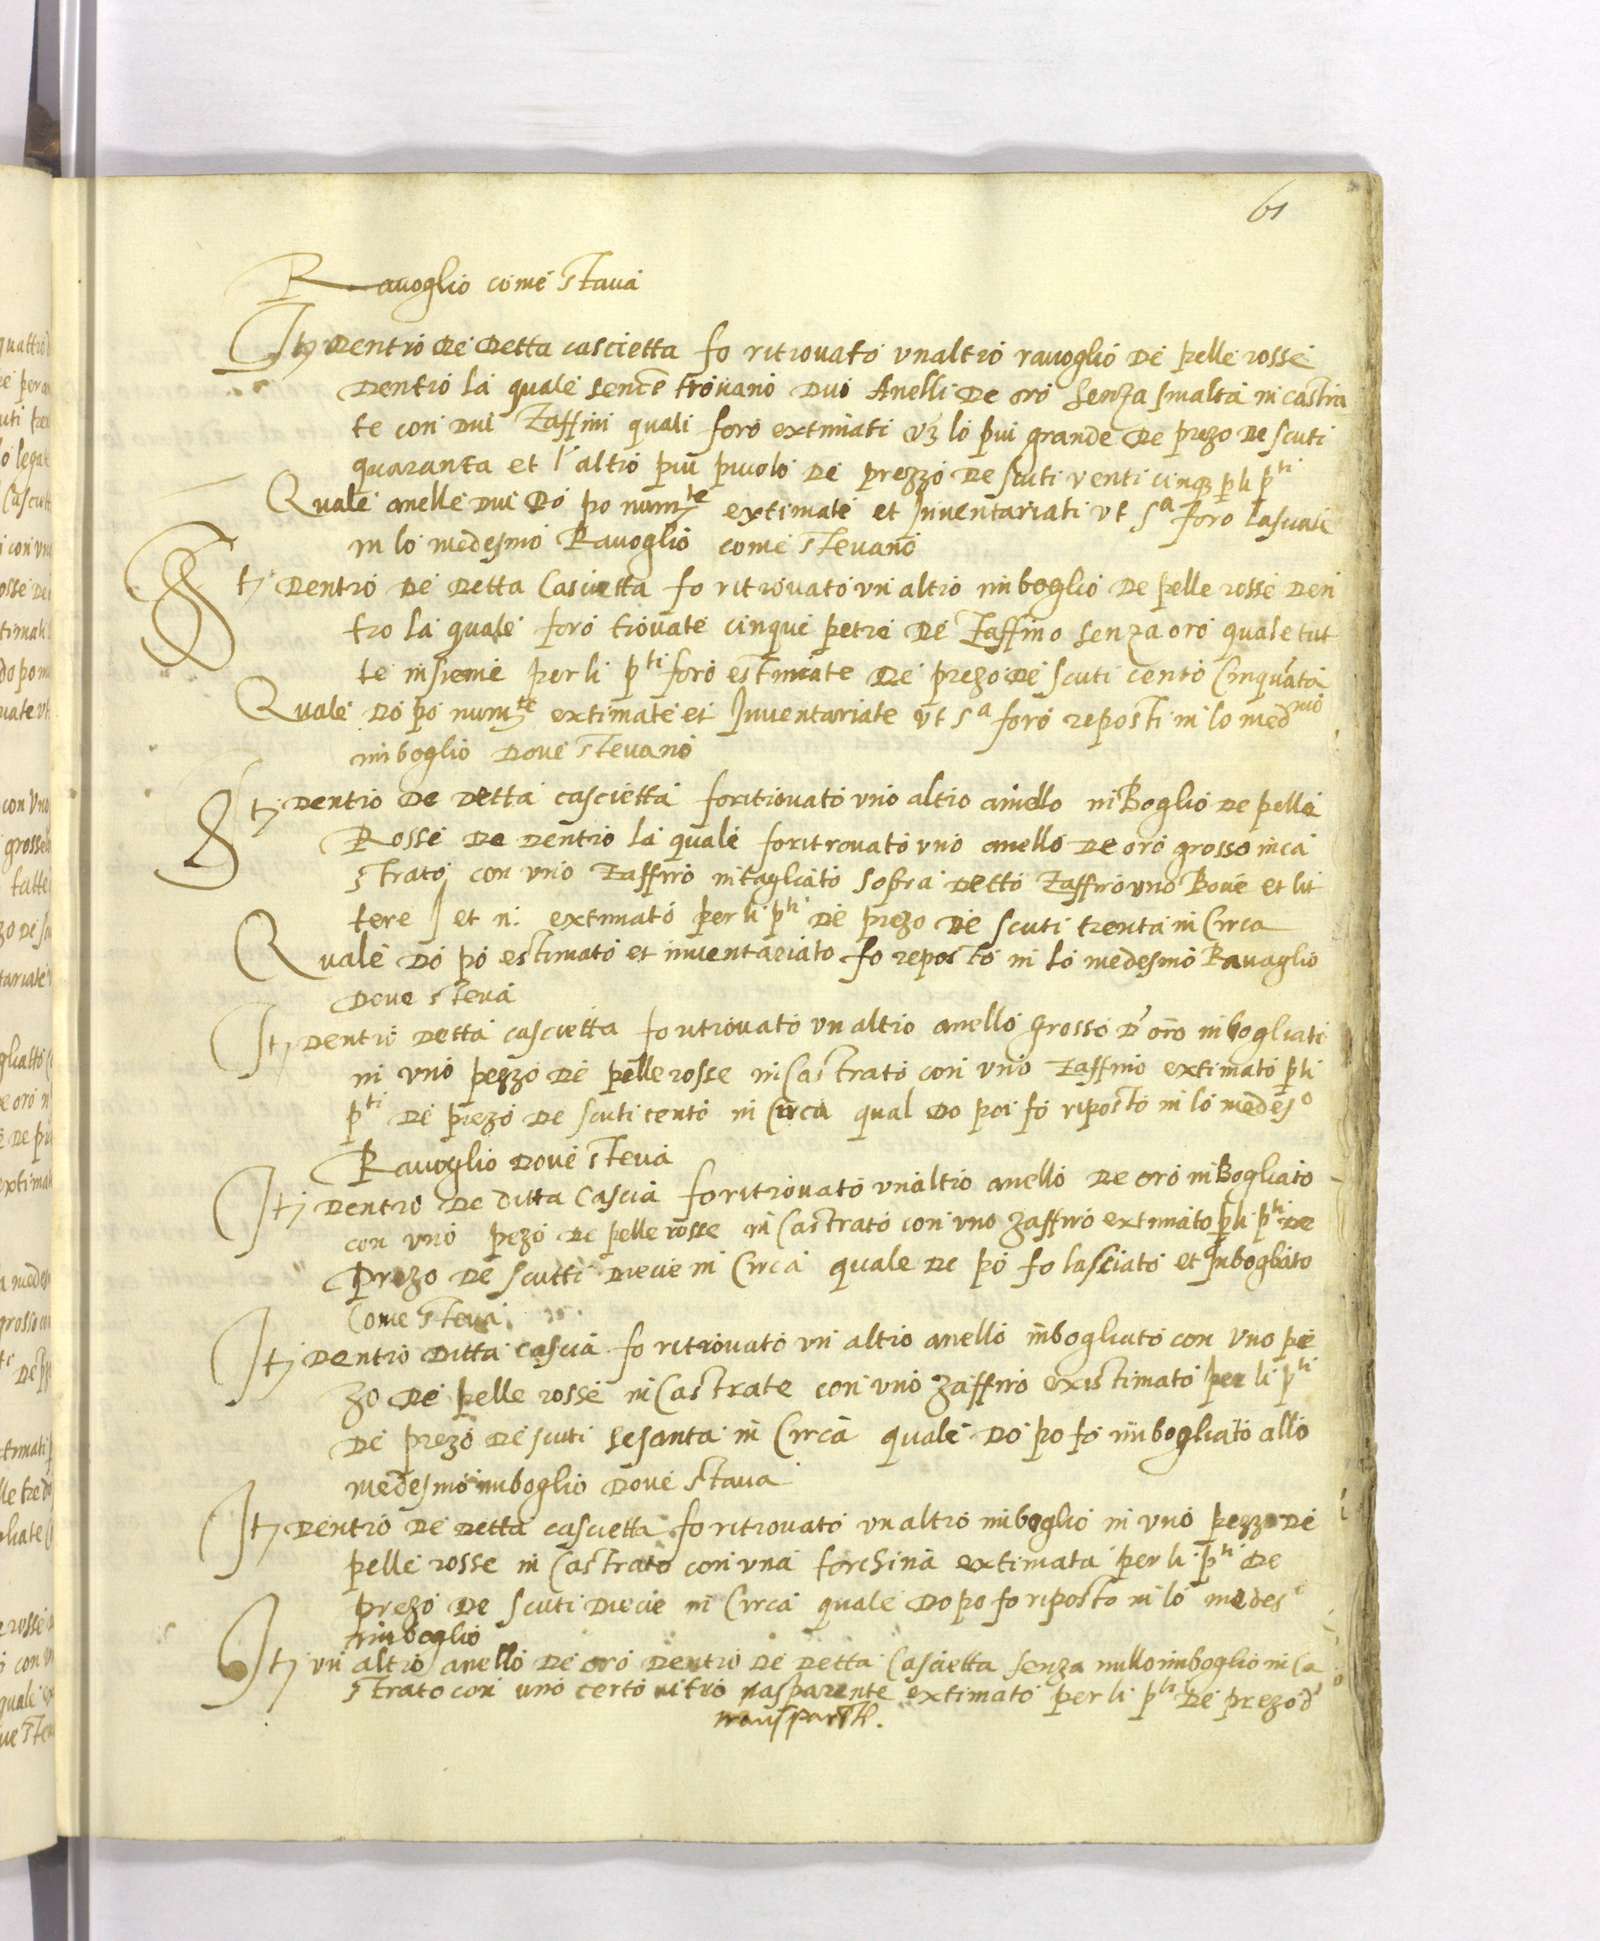 61
Ravoglio come stava
Itj Dentro de detta cascietta fo ritrovato unaltro ravoglio de pelle rosse
dentro la quale sence trovano dui Anelli de oro senza smalta incastra
te con dui Zaffini quali foro extimati vz lo piui grande de prezo de scuti
quaranta et l'altro più picolo de prezzo de scuti venti cinq pli pti
Quale anelle dui dò po numte extimate et Inventariati ut sa foro lasciate
in lo medesmo Ravoglio come stevano
Itj Dentro de detta Cascietta fo ritrovato un altro imboglio de pelle rosse den
tro la quale foro trovate cinque petre de Zaffino senza oro quale tut
te insieme per li pti foro estimate de prezo de scuti cento Cinquāta
Quale dò po numte extimate et Inventariate ut sa foro reposti in lo medmo
imboglio dove stevano
Itj Dentro de detta cascietta fo ritrovato uno altro anello inBoglio de pelle
Rosse de dentro la quale fo ritrovato uno anello de oro grosso inca
strato con uno Zaffiro intagliato sopra detto Zaffiro uno Bove et lit
tere I et n: extimato per li pti de prezo de scuti trenta in Circa
Quale dò pò estimato et inventariato fo reposto in lo medesmo Ravaglio
dove steva
Itj Dentro detta cascietta fo ritrovato un altro anello grosso d'oro inbogliato
in uno pezzo de pelle rosse inCastrato con uno Zaffino extimato pli
pti de prezo de scuti cento in Circa qual do poi fo riposto in lo medeso
Ravoglio dove steva
Itj Dentro de ditta Cascia fo ritrovato unaltro anello de oro inBogliato
con uno pezo de pelle rosse inCastrato con uno Zaffiro extimato pli pti de
prezo de scutti diecie in Circa quale de pò fo lasciato et Inbogliato
Come steva
Itj Dentro ditta cascia fo ritrovato un altro anello inbogliato con uno pe
zo de pelle rosse inCastrate con uno Zaffiro existimato per li pti
de prezo de scuti sesanta in Circa quale do po fo imbogliato allo
medesmo imboglio dove stava
Itj Dentro de detta cascietta fo ritrovato un altro imboglio in uno pezzo de
pelle rosse inCastrato con una torchina extimata per li pti de
prezo de scuti diecie in Circa quale do po fo riposto in lo medeso
imboglio
Itj un altro anello de oro dentro de detta Cascietta senza nullo imboglio inCa
strato con uno certo vitro trasparente extimato per li pti de prezo d'